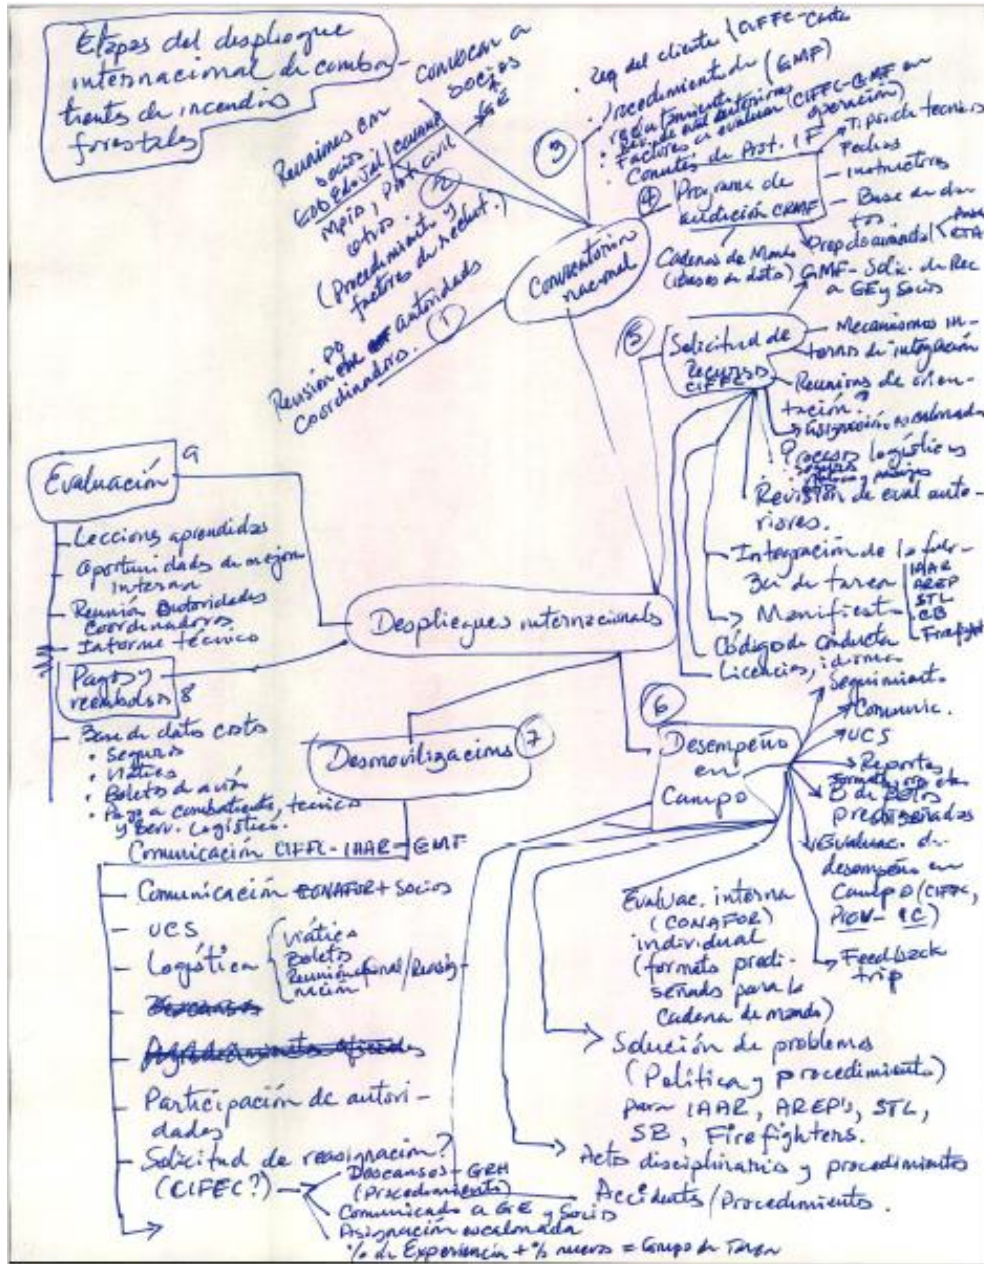 Etapas del despliegue
internacional de comba-
tientes de incendios
forestales
Convocar a
socios
GE
Reuniones en
socios
Mpio, Prot civil
otros
(Procedimiento y
factores de reclut.)
2
Revisión
autoridades
Coordinadoras.
1
3
Req del cliente (CIFFC-Costa
Procedimiento de
reclutamiento (GMF)
Factores a evaluar (CIFFC-GMF en
operación)
4
Programa de
audición CRMF
Tipo de tecnicos
Fechas
Instructores
Base de da-
tos.
Cadenas de Mando
(bases de datos)
Convocatoria
nacional
5
Solicitud de
Recursos
CIFFC
GMF- Solic. de Rec
a GE y Socios
Mecanismos in-
ternos de integración
Reuniones de orien-
tación?
Asignación escalonada
Procesos logísticos
Revisión de eval ante-
riores.
Integración de la fuer-
za de tarea
IAAR
AREP
STL
CB
Firefight
Manifiesto
Código de conducta
Licencias, idioma
Evaluación
9
Lecciones aprendidas
Oportunidades de mejora
interna
Reunión Autoridades
Coordinadoras
Informe técnico
Pagos y
reembolsos 8
Base de datos costos
• Seguros
• Viáticos
• Boletos de avión
• Pago a combatiente, técnico
y Serv. Logístico.
Despliegues internacionals
Desmovilizacions
7
Comunicación CIFFC-IAAR-GMF
Comunicación CONAFOR + Socios
UCS
Logística
Viática
Boletos
Reunión final/Reasig-
nación
Descansos
Agradecimientos oficiales
Participación de autori-
dades
Solicitud de reasignación?
(CIFEC?)
Descansos - GRH
(Procedimiento)
Comunicado a GE y Socios
Asignación escalonada
% de Experiencia + % nuevos = Grupo de Tarea
6
Desempeño
en
Campo
Seguimiento
Comunic.
UCS
Reportes
B de Datos
prediseñados
Evaluac. de
desempeño en
Campo (CIFFC,
PROV- IC)
Feedback
trip
Evaluac. interna
(CONAFOR)
individual
(formato predi-
señado para la
Cadena de mando)
Solución de problemas
(Política y procedimiento)
para IAAR, AREP's, STL,
SB, Firefighters.
Acto disciplinario y procedimientos
Accidents/Procedimiento.